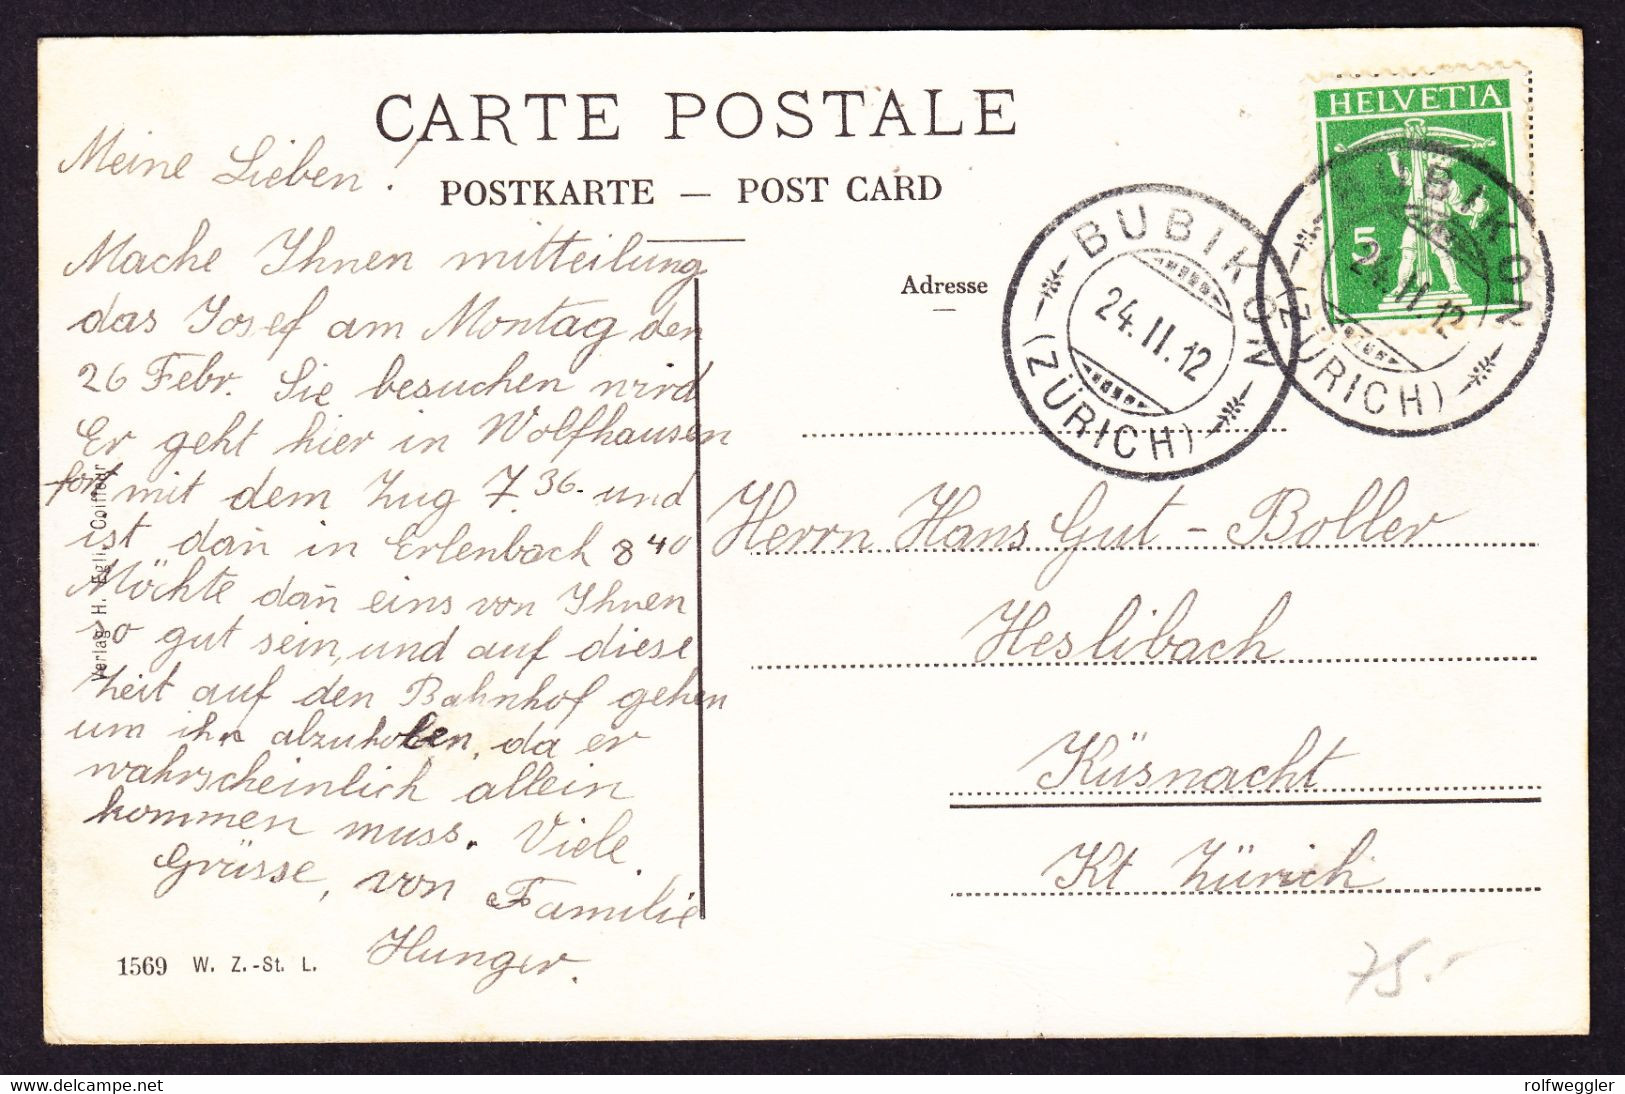 CARTE POSTALE
POSTKARTE — POST CARD
Adresse
HELVETIA
5
BUBIKON
24.II.12
(ZÜRICH)
BUBIKON
24.II.12
(ZÜRICH)
Meine Lieben!
Mache Ihnen mitteilung
das Josef am Montag den
26 Febr. Sie besuchen wird
Er geht hier in Wolfhausen
fort mit dem Zug 7.36. und
ist dan̄ in Erlenbach 8 40
Möchte dan̄ eins von Ihnen
so gut sein, und auf diese
Zeit auf den Bahnhof gehen
um ihn abzuholen, da er
wahrscheinlich allein
kommen muss. Viele
Grüsse, von Familie
Hunger.
Herrn Hans Gut - Boller
Heslibach
Küsnacht
Kt Zürich
75.-
Verlag H. Egli, Coiffeur
1569 W. Z.-St. L.
delcampe.net
rolfweggler